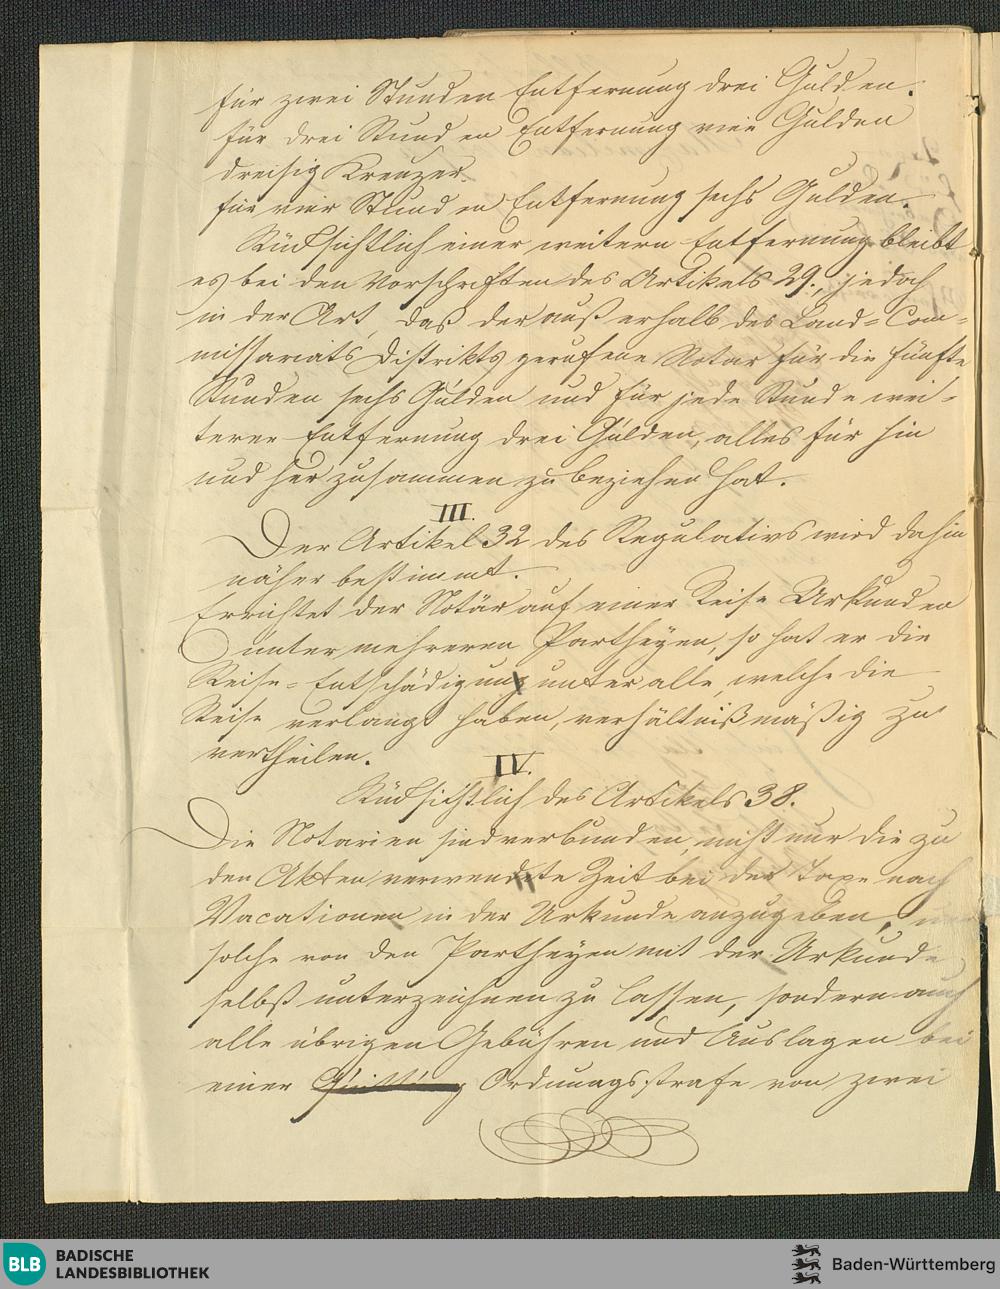 für zwei Stunden Entfernung drei Gulden.
für drei Stunden Entfernung vier Gulden
dreisig Kreuzer.
für vier Stunden Entfernung sechs Gulden.
Rücksichtlich einer weitern Entfernung bleibt
es bei den Vorschriften des Artikels 29., jedoch
in der Art, daß der außerhalb des Land-Com-
missariats Distrikts gerufene Notar für die fünfte
Stunden sechs Gulden und für jede Stunde wei-
terer Entfernung drei Gulden, alles für hin
und her zusammen zu beziehen hat.
III.
Der Artikel 32 des Regulativs wird dahin
näher bestimmt.
Errichtet der Notär auf einer Reise Urkunden
unter mehreren Partheyen, so hat er die
Reise-Entschädigung unter alle, welche die
Reise verlangt haben, verhältnißmäßig zu
vertheilen.
IV.
Rücksichtlich des Artikels 38.
Die Notarien sind verbunden, nicht nur die zu
den Akten verwendete Zeit bei der Taxe nach
Vacationen in der Urkunde anzugeben, und
solche von den Partheyen mit der Urkunde
selbst unterzeichnen zu lassen, sondern auch
alle übrigen Gebühren und Auslagen bei
einer Ordnungsstrafe von zwei
BLB BADISCHE
LANDESBIBLIOTHEK
Baden-Württemberg